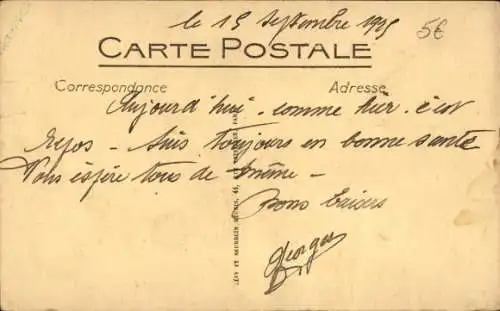 le 15 Septembre 1925
5€
CARTE POSTALE
Correspondance
Adresse
Aujourd'hui - comme hier - c'est
repos - Suis toujours en bonne santé
Vous espère tous de même -
Bons baisers
Georges
LÉVY ET NEURDEIN RÉUNIS, 44,